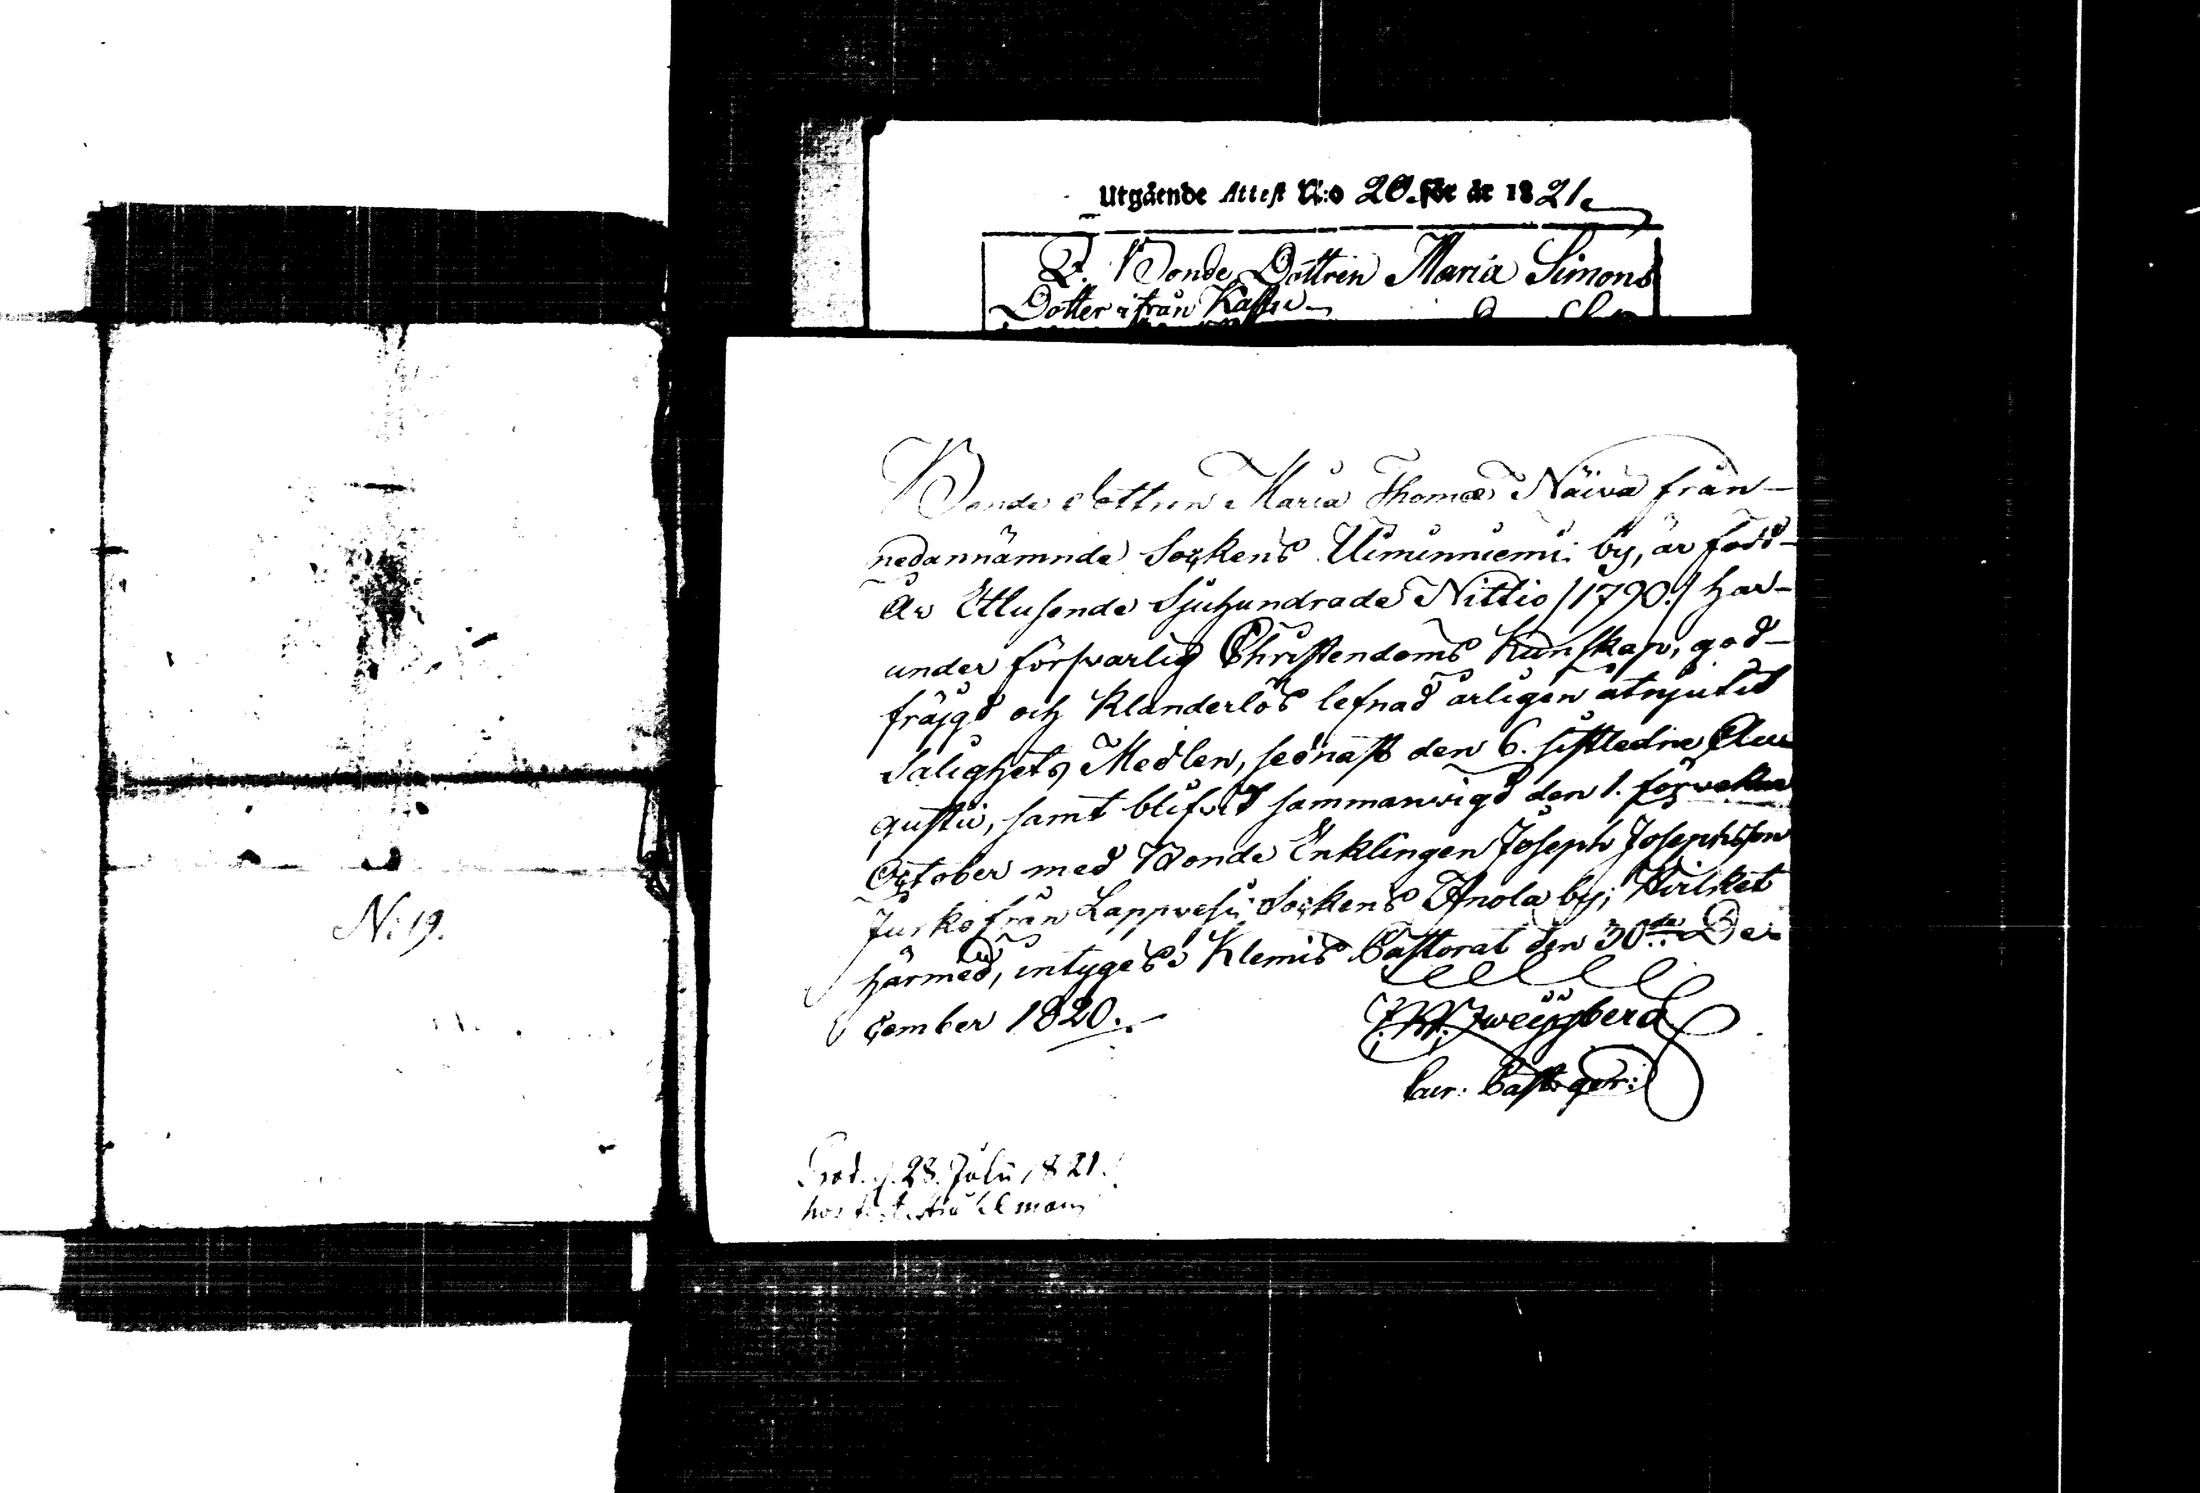 N: 19.
Utgående Attest N:o 20. för år 1821.
P. Bonde Dottren Maria Simons
Dotter ifrån
Bonde dottren Maria Thomæ Näivä från
nedannämnde Sockens Uiminniemi by, är född
År Ettusende Sjuhundrade Nittio /1790./ har
under försvarlig Christendoms Kunskap, god
frägd och klanderlös lefnad årligen åtnjutit
Salighets Medlen, sednast den 6. sistledne Au
gusti, samt blifvit sammanvigd den 1. förvekne
October med Bonde Enklingen Joseph Josephsson
Jurko från Lappvesi Sockens Anola by; Hvilket
härmed, intygas. Klemis Pastorat den 30de De
cember 1820.
J. W. Zweygberg
Cur: Past. ger:
Prod. d. 28. Julii 1821.
hos